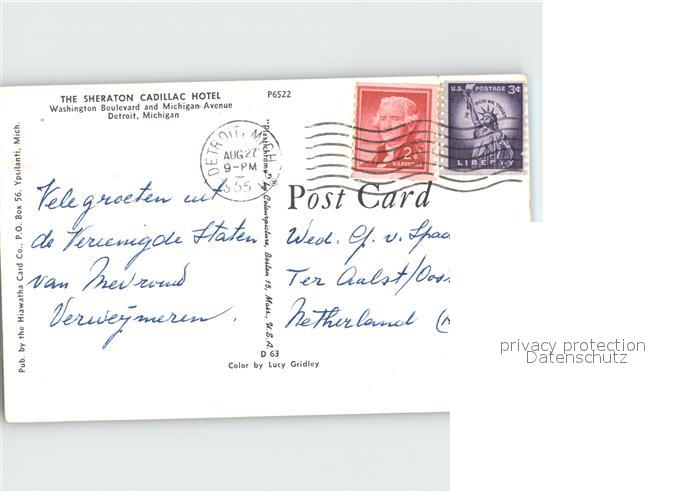 THE SHERATON CADILLAC HOTEL
Washington Boulevard and Michigan Avenue
Detroit, Michigan
P6522
U.S. POSTAGE 3¢
IN GOD WE TRUST
LIBERTY
2¢
U.S. POSTAGE
DETROIT, MICH.
AUG 27
9-PM
1955
Pub. by the Hiawatha Card Co., P.O. Box 56, Ypsilanti, Mich.
"Plastichrome" by Colourpicture, Boston 15, Mass., U.S.A.
Post Card
Vele groeten uit
de Verenigde Staten
van Mevrouw
Verweijmeren.
Wed. G. v. Spaa
Ter Aalst/Oos
Netherland (
D 63
Color by Lucy Gridley
privacy protection
Datenschutz